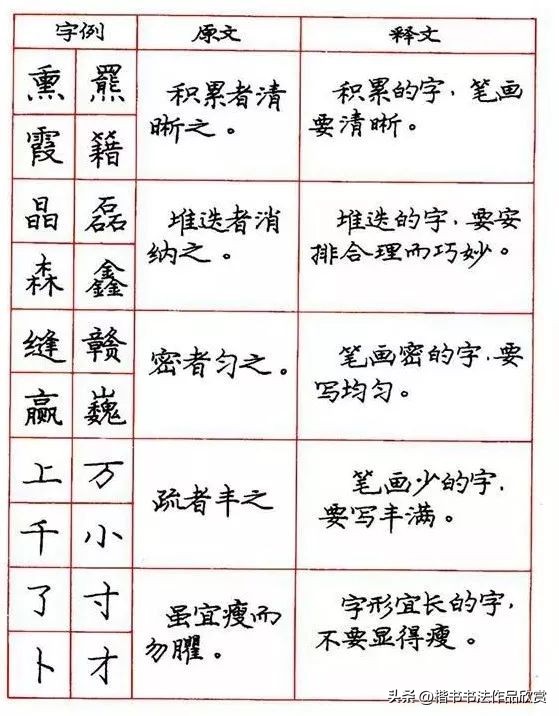 字例 原文 释文
熏
霞 籍
积累者清
晰之。
积累的字，笔画
要清晰。
晶 磊
森 鑫
堆迭者消
纳之。
堆迭的字，要安
排合理而巧妙。
缝 赣
赢 巍
密者匀之。
笔画密的字，要
写均匀。
上 万
千 小
疏者丰之
笔画少的字，
要写丰满。
了 寸
卜 才
虽宜瘦而
勿臞。
字形宜长的字，
不要显得瘦。
头条@楷书书法作品欣赏